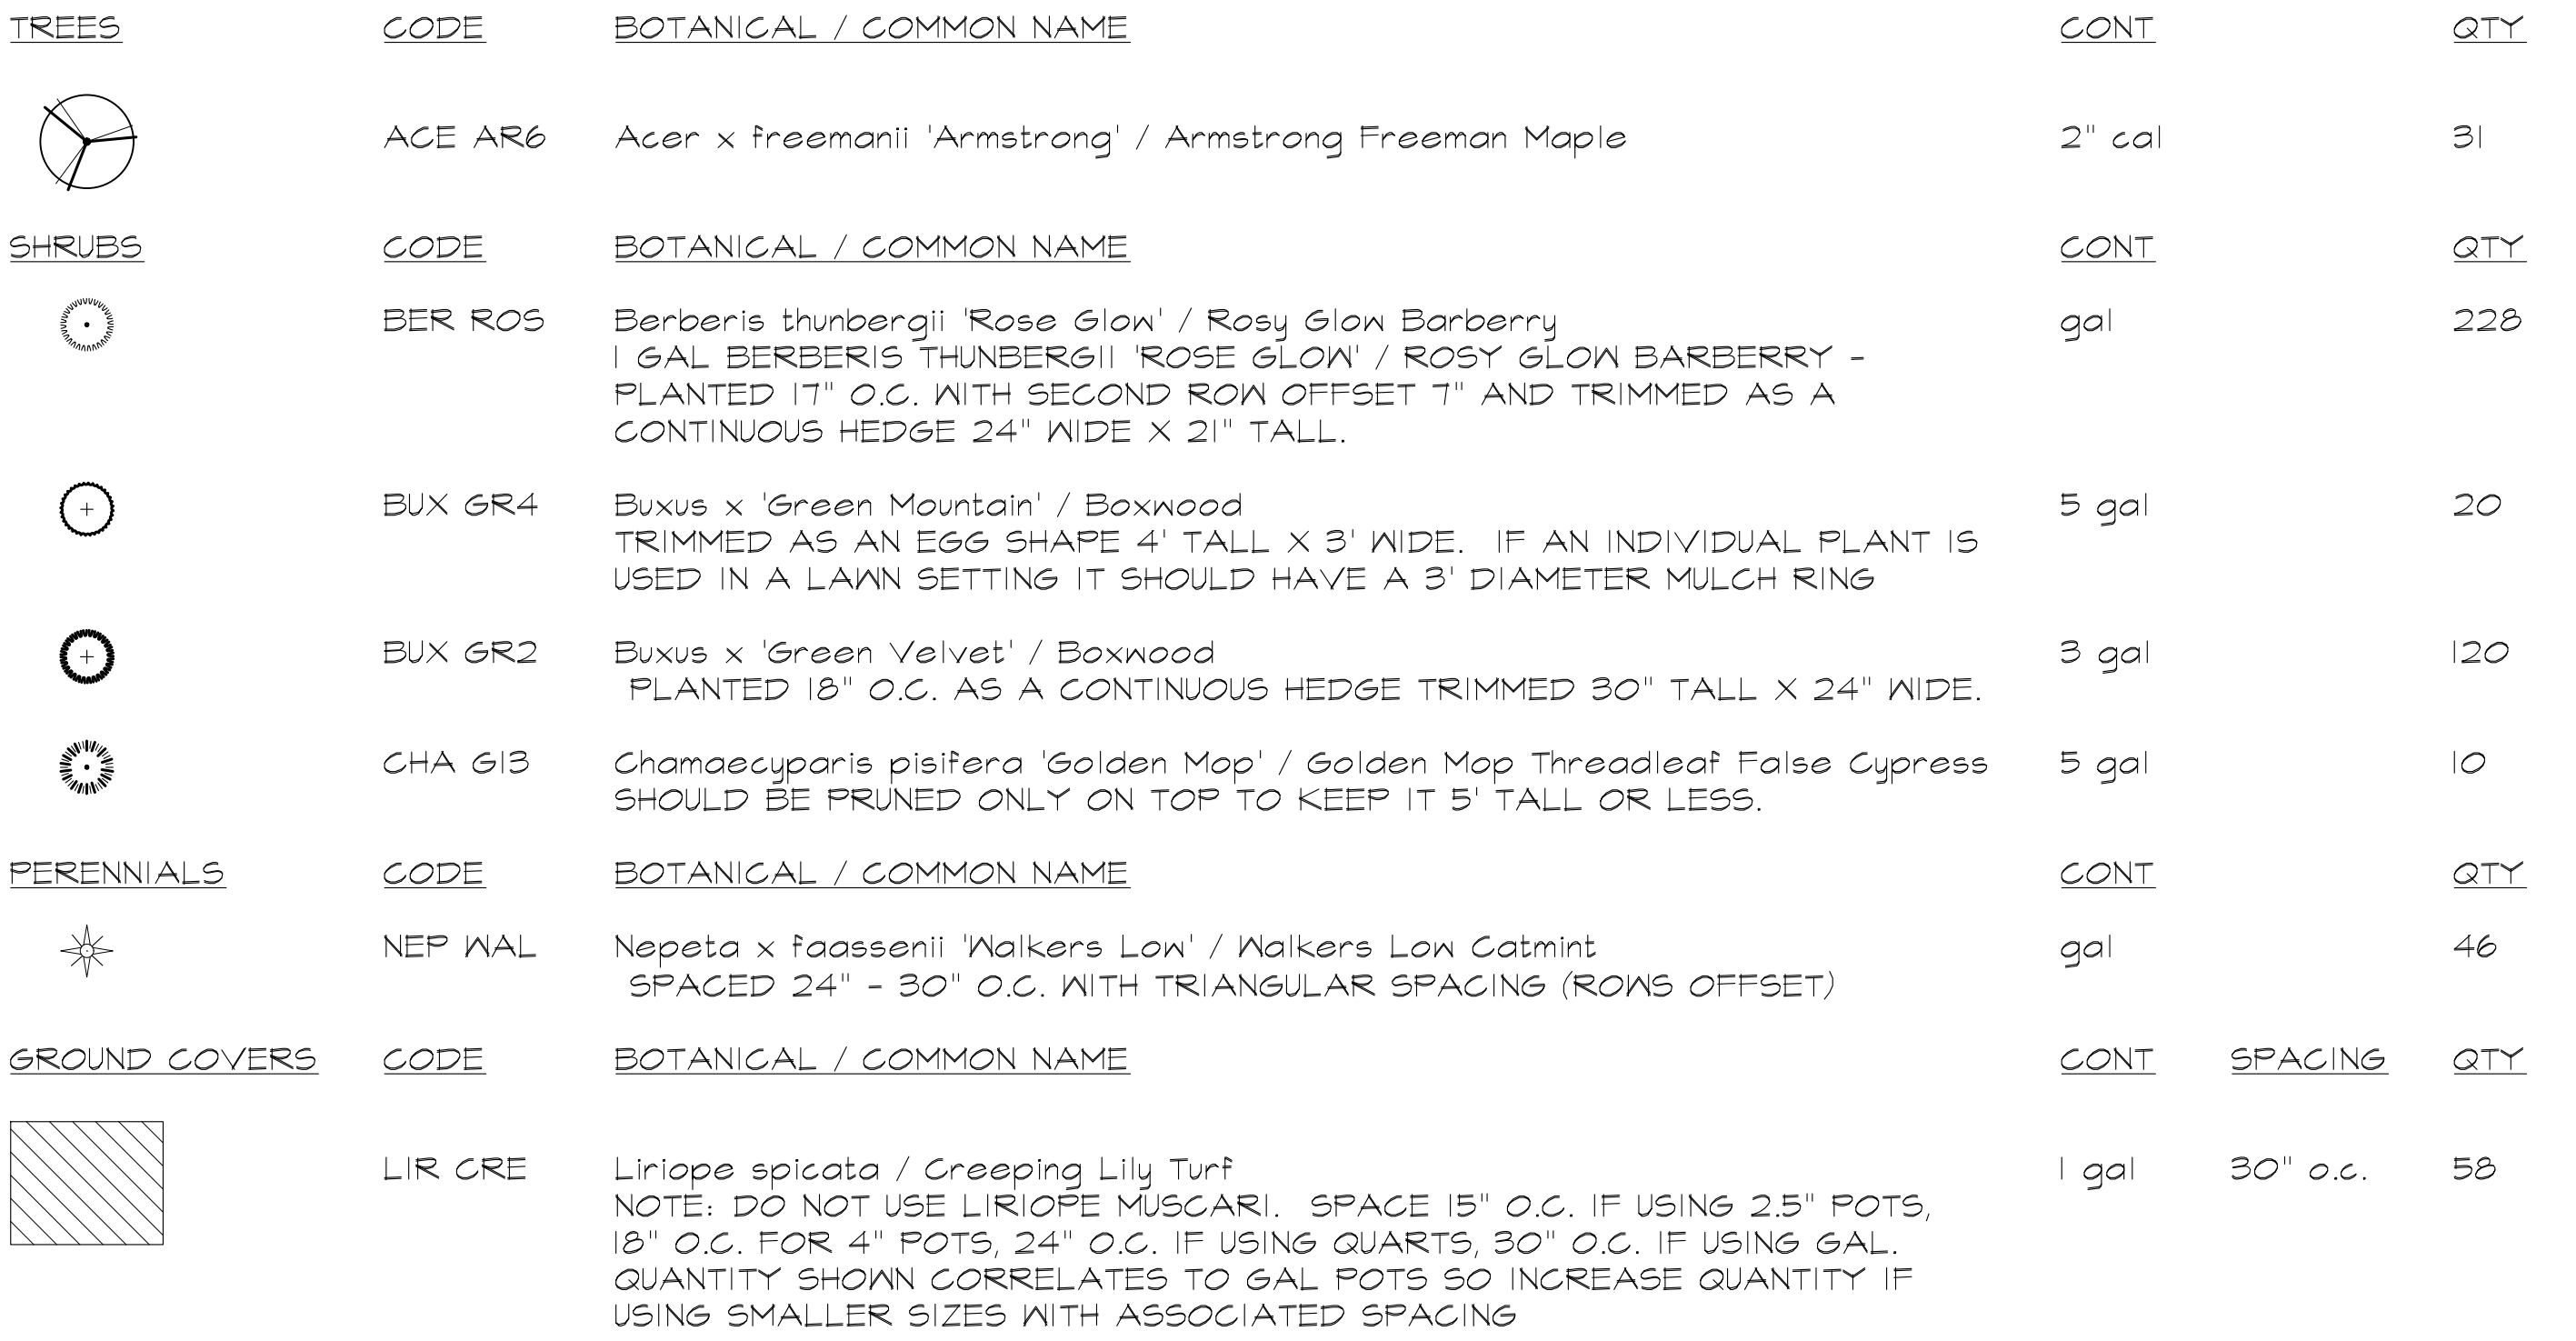 TREES CODE BOTANICAL / COMMON NAME CONT QTY
ACE AR6 Acer x freemanii 'Armstrong' / Armstrong Freeman Maple 2" cal 31
SHRUBS CODE BOTANICAL / COMMON NAME CONT QTY
BER ROS Berberis thunbergii 'Rose Glow' / Rosy Glow Barberry gal 228
1 GAL BERBERIS THUNBERGII 'ROSE GLOW' / ROSY GLOW BARBERRY -
PLANTED 17" O.C. WITH SECOND ROW OFFSET 7" AND TRIMMED AS A
CONTINUOUS HEDGE 24" WIDE X 21" TALL.
BUX GR4 Buxus x 'Green Mountain' / Boxwood 5 gal 20
TRIMMED AS AN EGG SHAPE 4' TALL X 3' WIDE. IF AN INDIVIDUAL PLANT IS
USED IN A LAWN SETTING IT SHOULD HAVE A 3' DIAMETER MULCH RING
BUX GR2 Buxus x 'Green Velvet' / Boxwood 3 gal 120
PLANTED 18" O.C. AS A CONTINUOUS HEDGE TRIMMED 30" TALL X 24" WIDE.
CHA G13 Chamaecyparis pisifera 'Golden Mop' / Golden Mop Threadleaf False Cypress 5 gal 10
SHOULD BE PRUNED ONLY ON TOP TO KEEP IT 5' TALL OR LESS.
PERENNIALS CODE BOTANICAL / COMMON NAME CONT QTY
NEP WAL Nepeta x faassenii 'Walkers Low' / Walkers Low Catmint gal 46
SPACED 24" - 30" O.C. WITH TRIANGULAR SPACING (ROWS OFFSET)
GROUND COVERS CODE BOTANICAL / COMMON NAME CONT SPACING QTY
LIR CRE Liriope spicata / Creeping Lily Turf 1 gal 30" o.c. 58
NOTE: DO NOT USE LIRIOPE MUSCARI. SPACE 15" O.C. IF USING 2.5" POTS,
18" O.C. FOR 4" POTS, 24" O.C. IF USING QUARTS, 30" O.C. IF USING GAL.
QUANTITY SHOWN CORRELATES TO GAL POTS SO INCREASE QUANTITY IF
USING SMALLER SIZES WITH ASSOCIATED SPACING